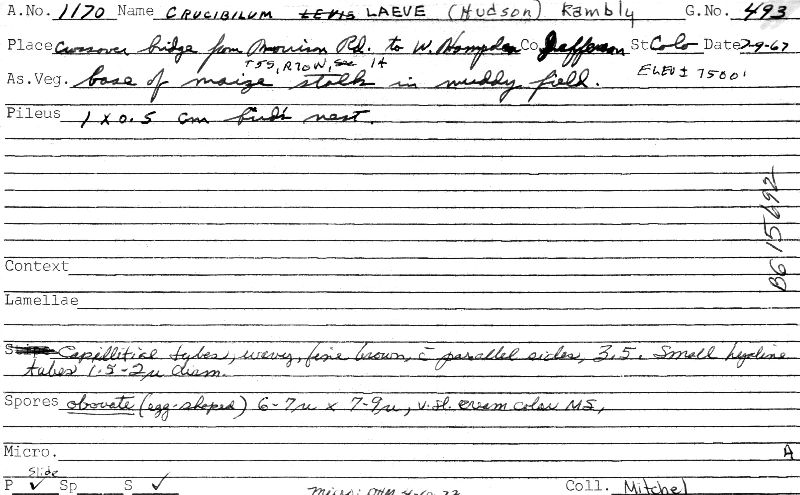 A.No. 1170 Name CRUCIBILUM LEVIS LAEVE (Hudson) Kambly G.No. 493
Place Crossover bridge from Morrison Rd. to W. Hampden Co Jefferson St Colo Date 7-9-67
T5S, R70W, sec 14 ELEV ± 7500'
As.Veg. base of maize stalk in muddy field.
Pileus 1 x 0.5 cm bird's nest.
BG 15692
Context
Lamellae
Stipe Capillitial tubes, wavy, fine brown, c̄ parallel sides, 3.5. Small hyaline
tubes 1.5-2µ diam.
Spores obovate (egg-shaped) 6-7µ x 7-9µ, v. sl. cream color MS,
Micro. A
Slide
P ✓ Sp S ✓ Coll. Mitchel